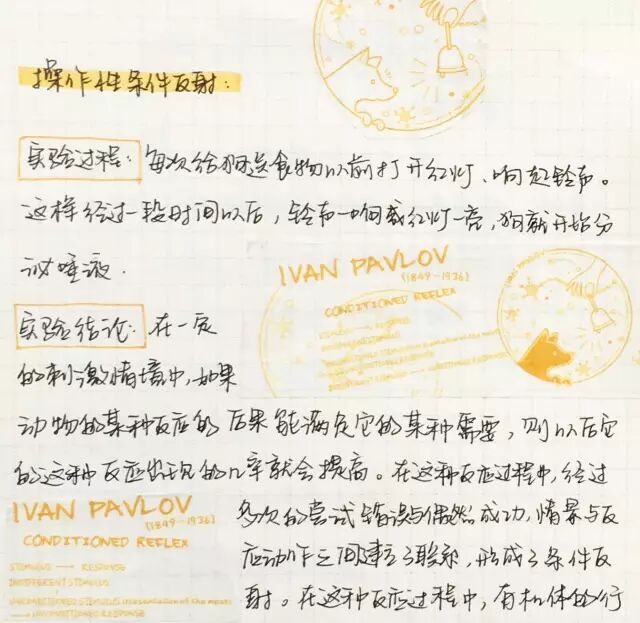 操作性条件反射：
实验过程：每次给狗送食物以前打开红灯、响起铃声。
这样经过一段时间以后，铃声一响或红灯一亮，狗就开始分
泌唾液．
IVAN PAVLOV
(1849-1936)
CONDITIONED REFLEX
实验结论：在一定
的刺激情境中，如果
动物的某种反应的后果能满足它的某种需要，则以后它
的这种反应出现的几率就会提高。在这种反应过程中，经过
IVAN PAVLOV
(1849-1936)
CONDITIONED REFLEX
STIMULUS → RESPONSE
INDIFFERENT STIMULUS
多次的尝试错误与偶然成功，情景与反
应动作之间建立了联系，形成了条件反
射。在这种反应过程中，有机体的行